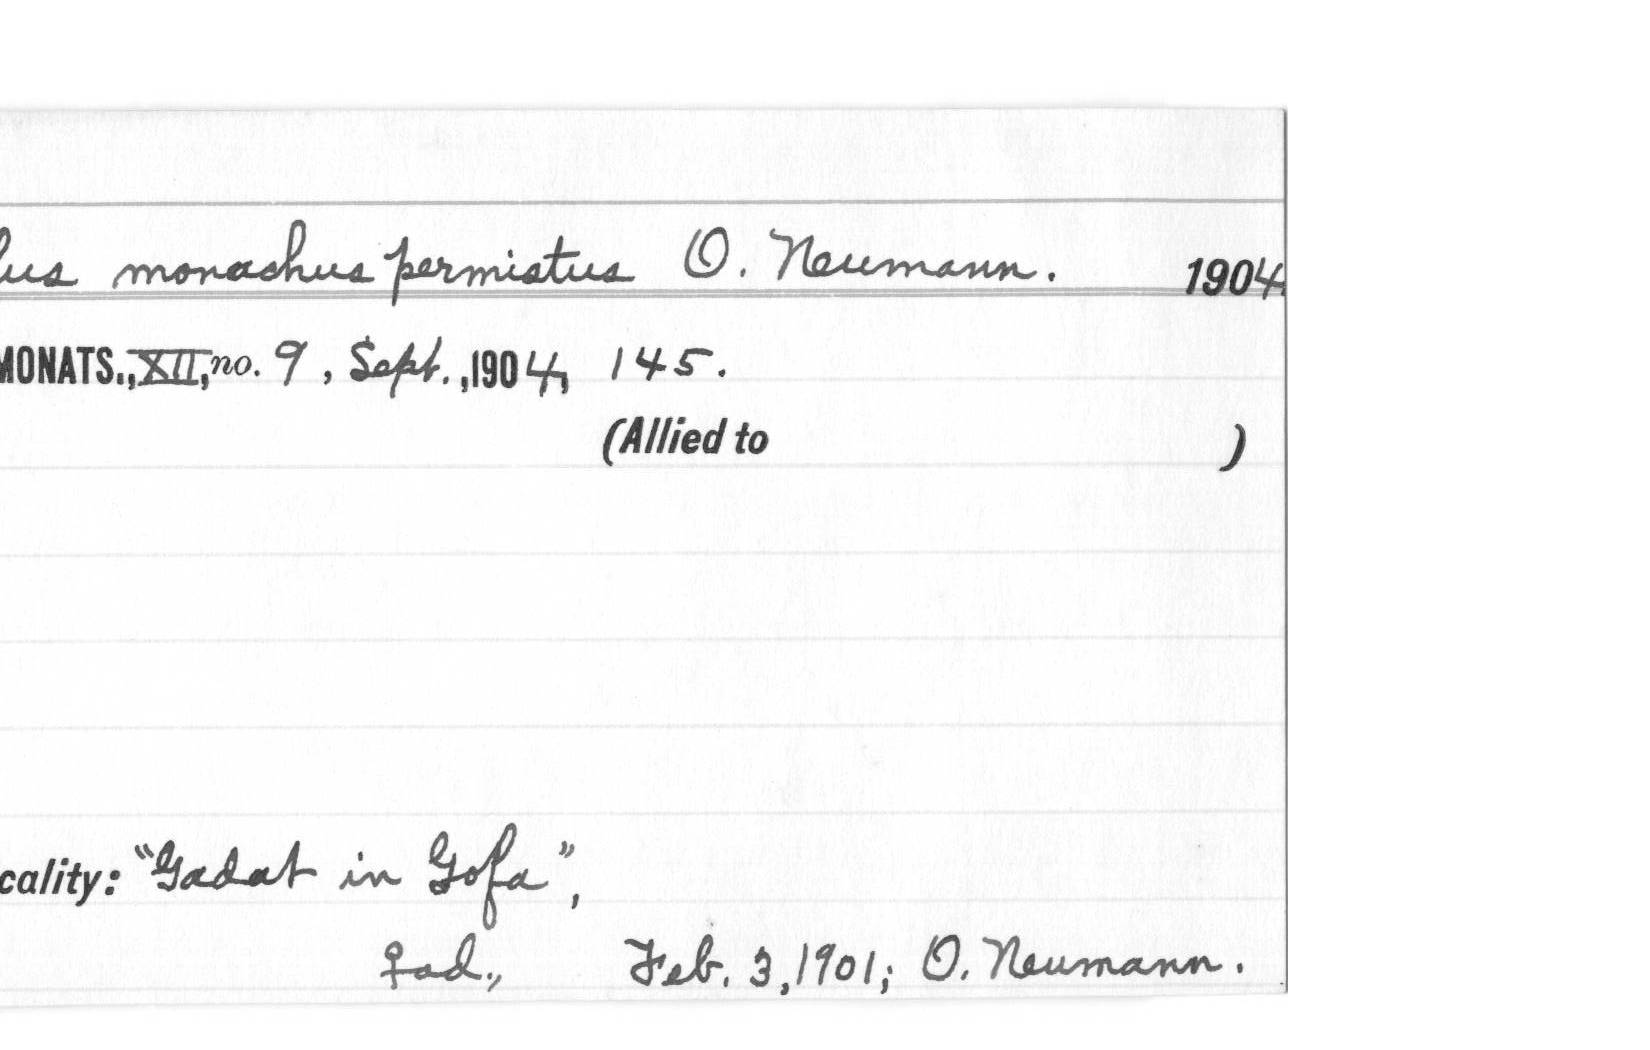 lus monachus permistus O. Neumann. 1904.
MONATS., XII, no. 9, Sept., 1904, 145.
(Allied to )
cality: "Gadat in Gofa",
♀ad., Feb. 3, 1901; O. Neumann.